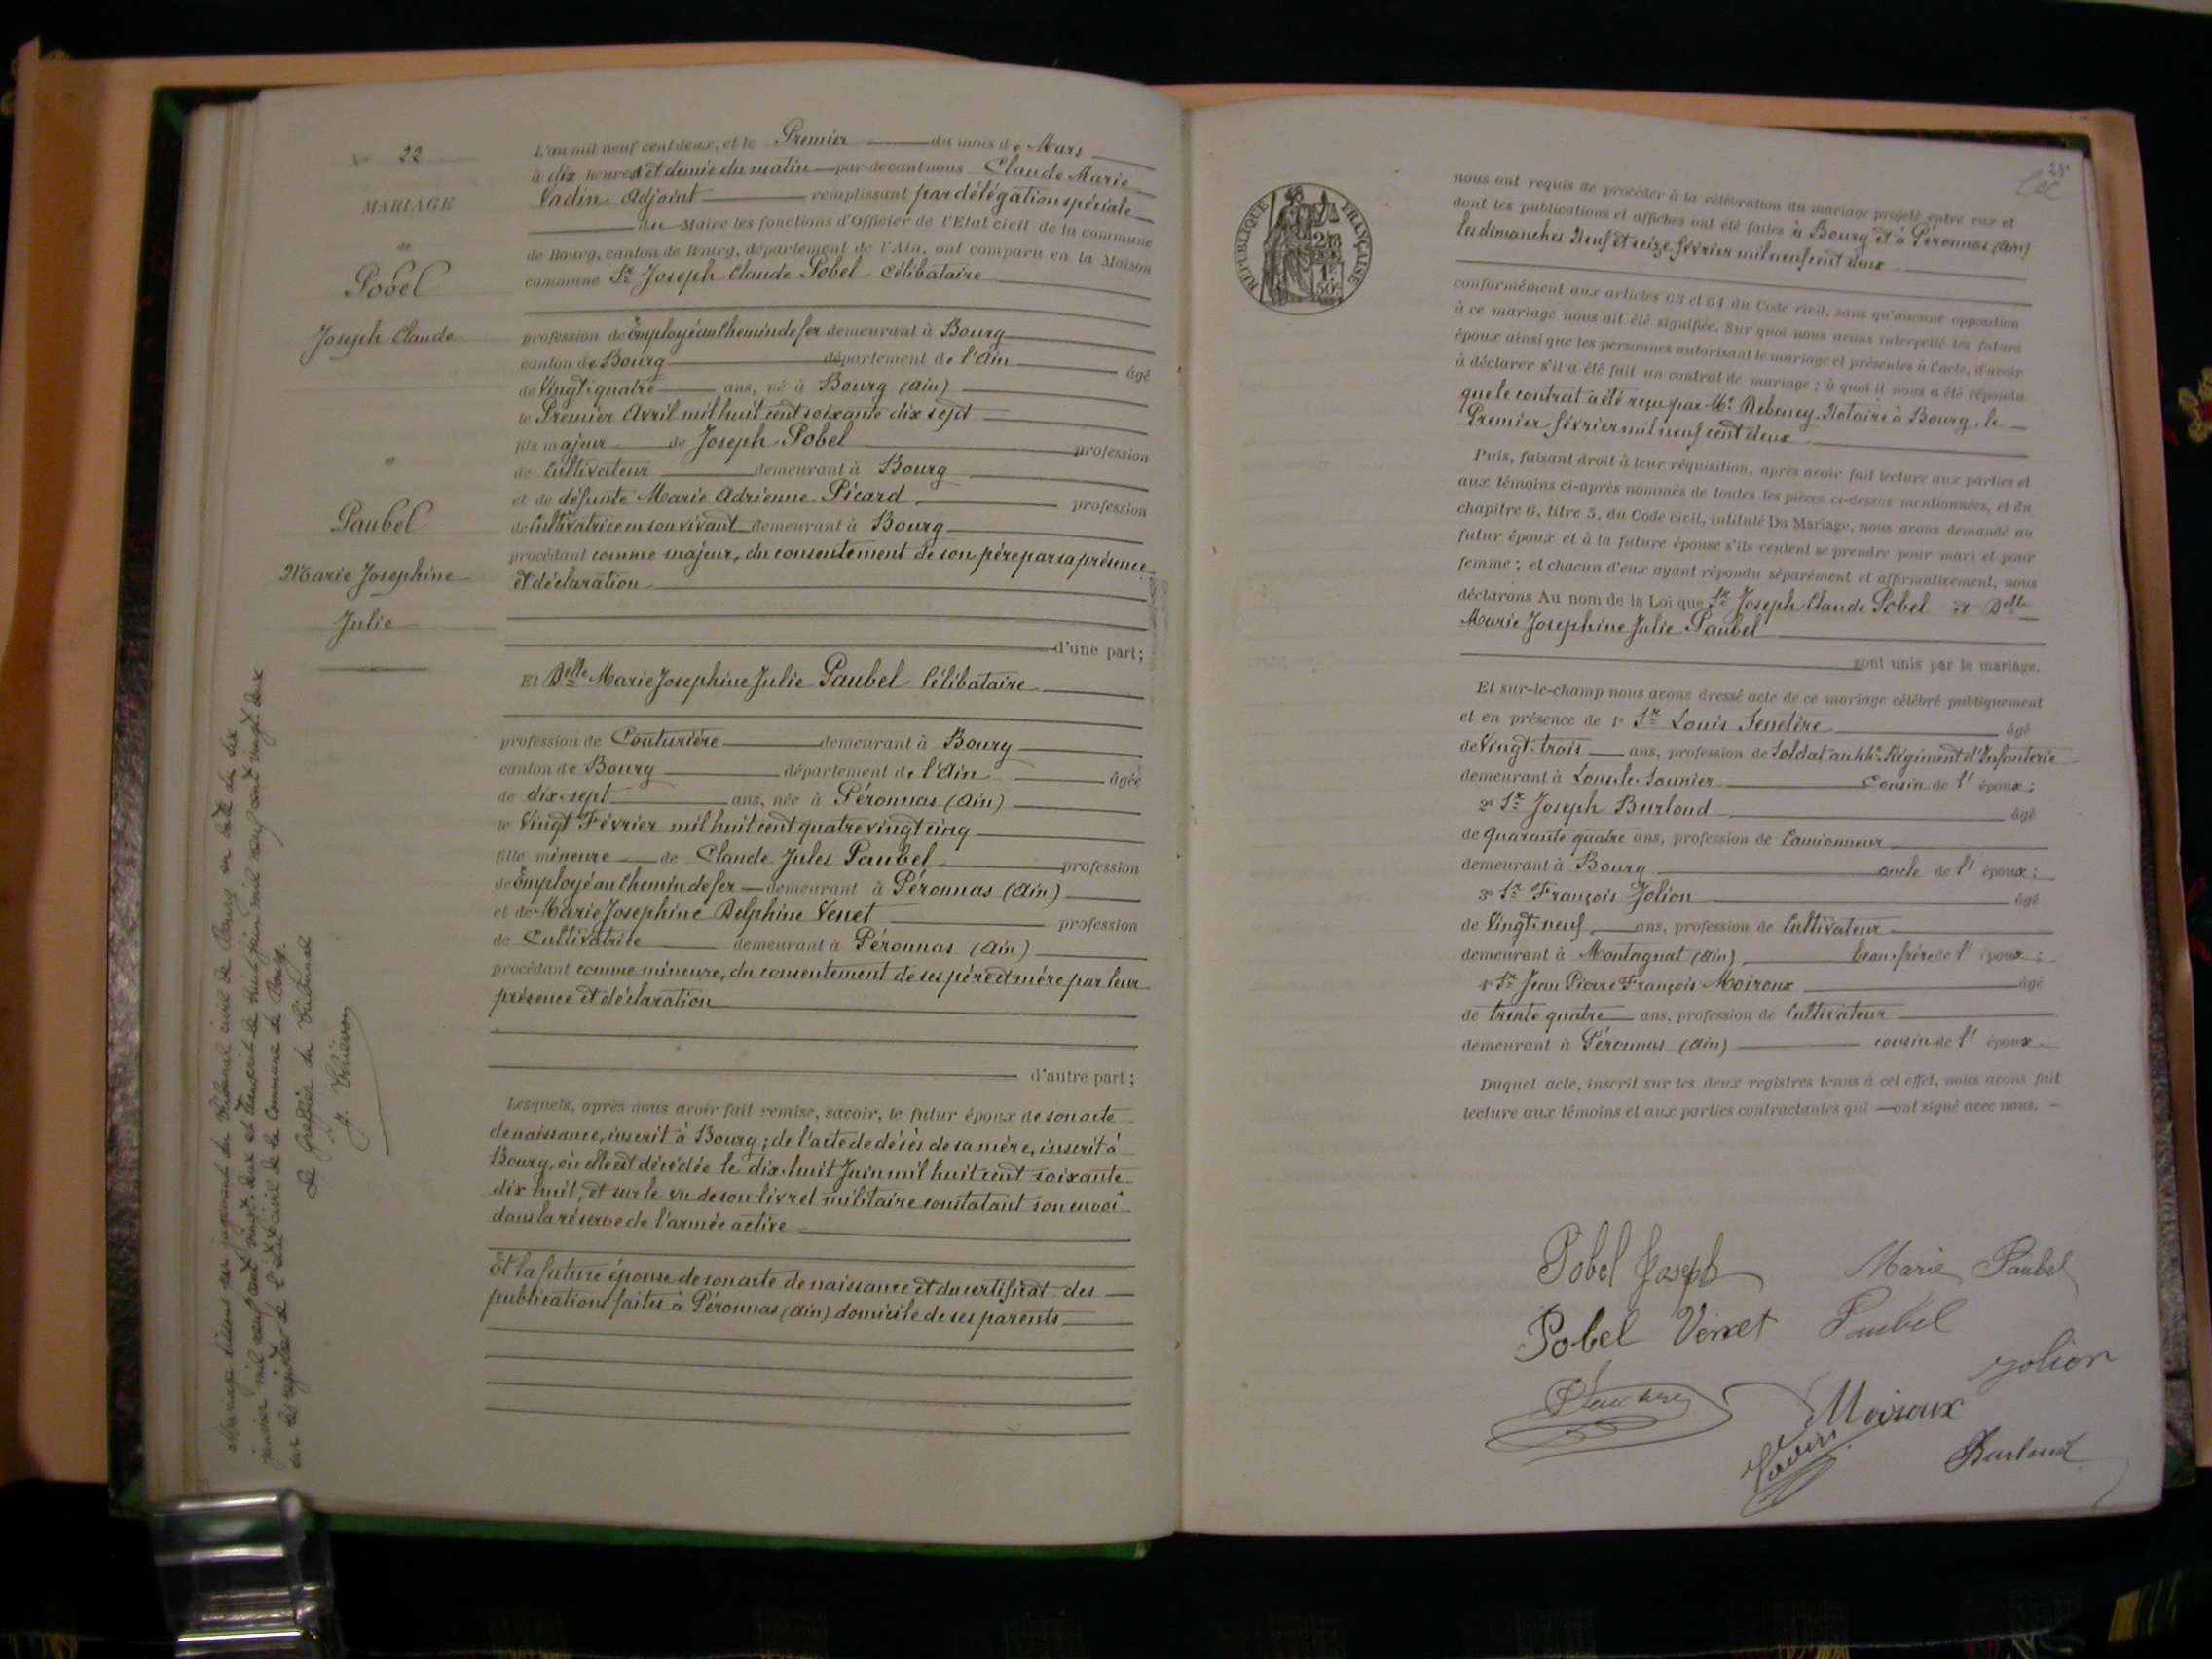 N° 22
MARIAGE
de
Pobel
Joseph Claude
et
Paubel
Marie Josephine
Julie
Mariage dissous par jugement du Tribunal civil de Bourg en date du dix
janvier mil neuf cent vingt-deux et transcrit le huit juin mil neuf cent vingt deux
sur les registres de l'Etat civil de la Commune de Bourg.
Le Greffier du Tribunal
L'an mil neuf cent deux, et le Premier du mois de Mars
à dix heures et demie du matin par-devant nous Claude Marie
Vadin Adjoint remplissant par délégation spéciale
du Maire les fonctions d'Officier de l'Etat civil de la commune
de Bourg, canton de Bourg, département de l'Ain, ont comparu en la Maison
commune Sr Joseph Claude Pobel Célibataire
profession de Employé au Chemin de fer demeurant à Bourg
canton de Bourg département de l'Ain âgé
de Vingt-quatre ans, né à Bourg (Ain)
le Premier Avril mil huit cent soixante dix sept
fils majeur de Joseph Pobel profession
de Cultivateur demeurant à Bourg
et de défunte Marie Adrienne Picard profession
de Cultivatrice en son vivant demeurant à Bourg
procédant comme majeur, du consentement de son père par sa présence
et déclaration
d'une part;
Et Delle Marie Josephine Julie Paubel Célibataire
profession de Couturière demeurant à Bourg
canton de Bourg département de l'Ain âgée
de dix-sept ans, née à Péronnas (Ain)
le Vingt Février mil huit cent quatre vingt cinq
fille mineure de Claude Jules Paubel profession
de Employé au Chemin de fer demeurant à Péronnas (Ain)
et de Marie Josephine Delphine Venet profession
de Cultivatrice demeurant à Péronnas (Ain)
procédant comme mineure, du consentement de ses père et mère par leur
présence et déclaration
d'autre part;
Lesquels, après nous avoir fait remise, savoir, le futur époux de son acte
de naissance, inscrit à Bourg; de l'acte de décès de sa mère, inscrit à
Bourg, où elle est décédée le dix-huit Juin mil huit cent soixante
dix huit, et sur le vu de son livret militaire constatant son envoi
dans la réserve de l'armée active
Et la future épouse de son acte de naissance et du certificat des
publications faites à Péronnas (Ain) domicile de ses parents
REPUBLIQUE FRANÇAISE
nous ont requis de procéder à la célébration du mariage projeté entre eux et
dont les publications et affiches ont été faites à Bourg et à Péronnas (Ain)
les dimanches Neuf et seize février mil neuf cent deux
conformément aux articles 63 et 64 du Code civil, sans qu'aucune opposition
à ce mariage nous ait été signifiée. Sur quoi nous avons interpellé les futurs
époux ainsi que les personnes autorisant le mariage et présentes à l'acte, d'avoir
à déclarer s'il a été fait un contrat de mariage; à quoi il nous a été répondu
que le contrat a été reçu par Me Debeney, Notaire à Bourg, le
Premier février mil neuf cent deux
Puis, faisant droit à leur réquisition, après avoir fait lecture aux parties et
aux témoins ci-après nommés de toutes les pièces ci-dessus mentionnées, et du
chapitre 6, titre 5, du Code civil, intitulé Du Mariage, nous avons demandé au
futur époux et à la future épouse s'ils veulent se prendre pour mari et pour
femme; et chacun d'eux ayant répondu séparément et affirmativement, nous
déclarons Au nom de la Loi que Sr Joseph Claude Pobel et Delle
Marie Josephine Julie Paubel
sont unis par le mariage.
Et sur-le-champ nous avons dressé acte de ce mariage célébré publiquement
et en présence de 1° Sr Louis Tenetère âgé
de Vingt-trois ans, profession de Soldat au 44e Régiment d'Infanterie
demeurant à Lons-le-Saunier Cousin de l'époux;
2° Sr Joseph Burloud âgé
de Quarante quatre ans, profession de Camionneur
demeurant à Bourg oncle de l'époux;
3° Sr François Jolion âgé
de Vingt-neuf ans, profession de Cultivateur
demeurant à Montagnat (Ain) beau-frère de l'époux;
4° Sr Jean Pierre François Moiroux âgé
de trente quatre ans, profession de Cultivateur
demeurant à Péronnas (Ain) cousin de l'époux.
Duquel acte, inscrit sur les deux registres tenus à cet effet, nous avons fait
lecture aux témoins et aux parties contractantes qui ont signé avec nous.
Pobel Joseph Marie Paubel
Pobel Venet Paubel
Jolion
Moiroux
Vadin
Burloud